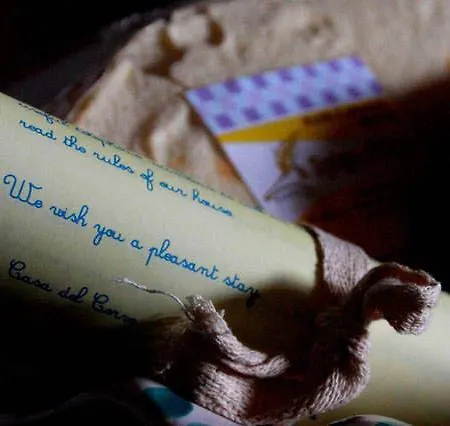 read the rules of our house
We wish you a pleasant stay
Casa del